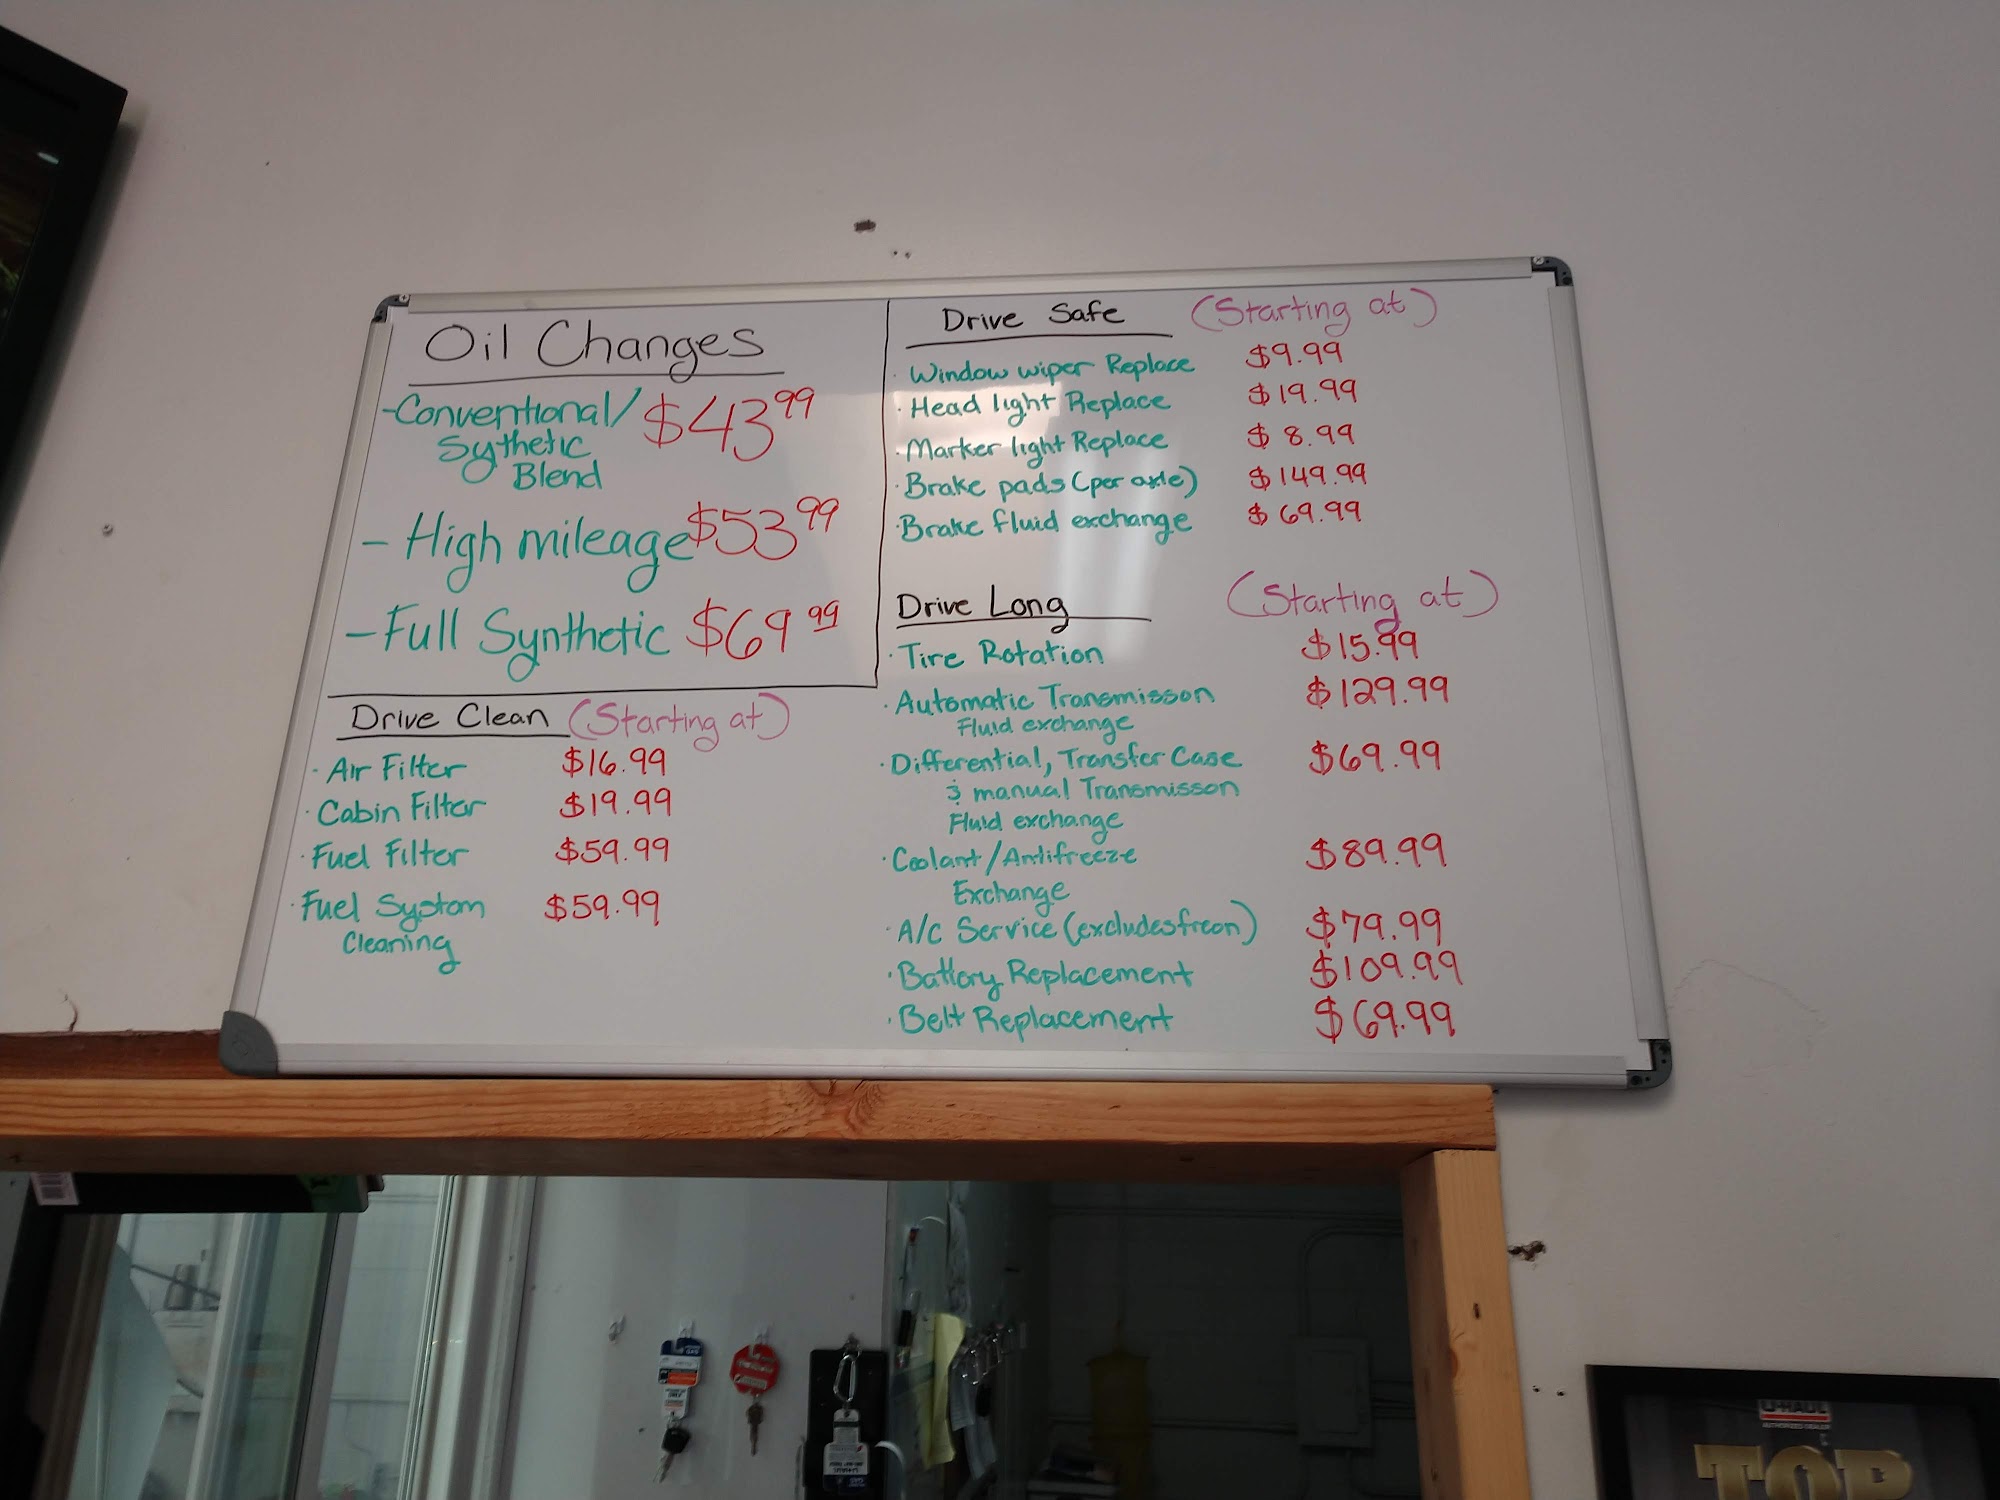 Oil Changes
-Conventional/ $43.99
Sythetic
Blend
- High mileage $53.99
- Full Synthetic $69.99
Drive Clean (Starting at)
· Air Filter $16.99
· Cabin Filter $19.99
· Fuel Filter $59.99
· Fuel System $59.99
Cleaning
Drive Safe (Starting at)
· Window wiper Replace $9.99
· Head light Replace $19.99
· Marker light Replace $8.99
· Brake pads (per axle) $149.99
· Brake fluid exchange $69.99
Drive Long (Starting at)
· Tire Rotation $15.99
· Automatic Transmisson $129.99
Fluid exchange
· Differential, Transfer Case $69.99
& manual Transmisson
Fluid exchange
· Coolant/Antifreeze $89.99
Exchange
· A/C Service (excludes freon) $79.99
· Battery Replacement $109.99
· Belt Replacement $69.99
U-HAUL
AUTHORIZED DEALER
TOP